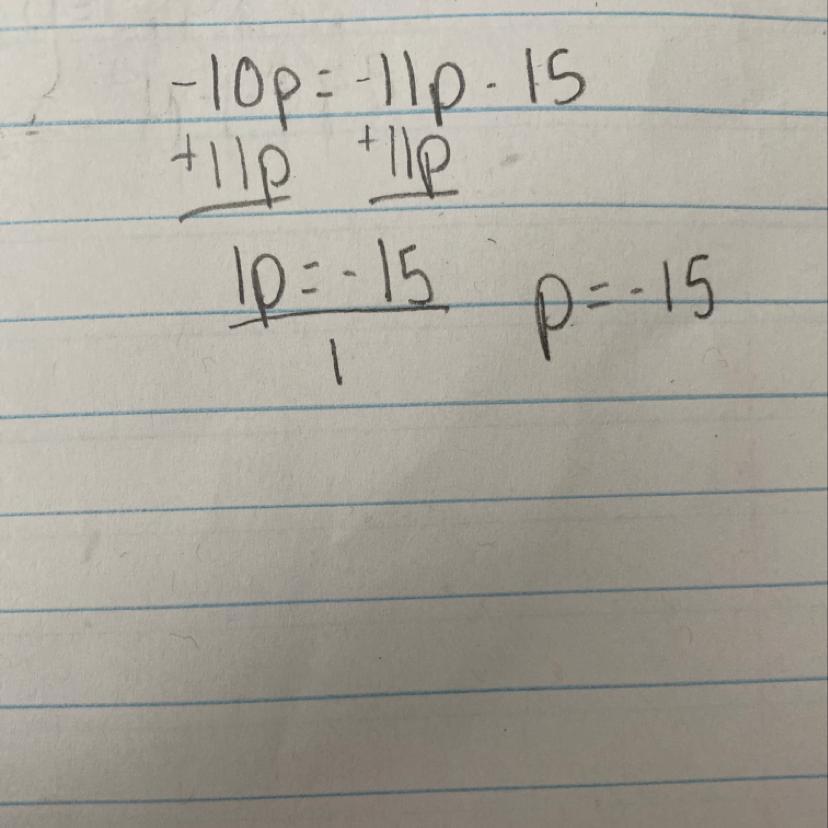 -10p = -11p - 15
+11p +11p
1p = -15
1
p = -15